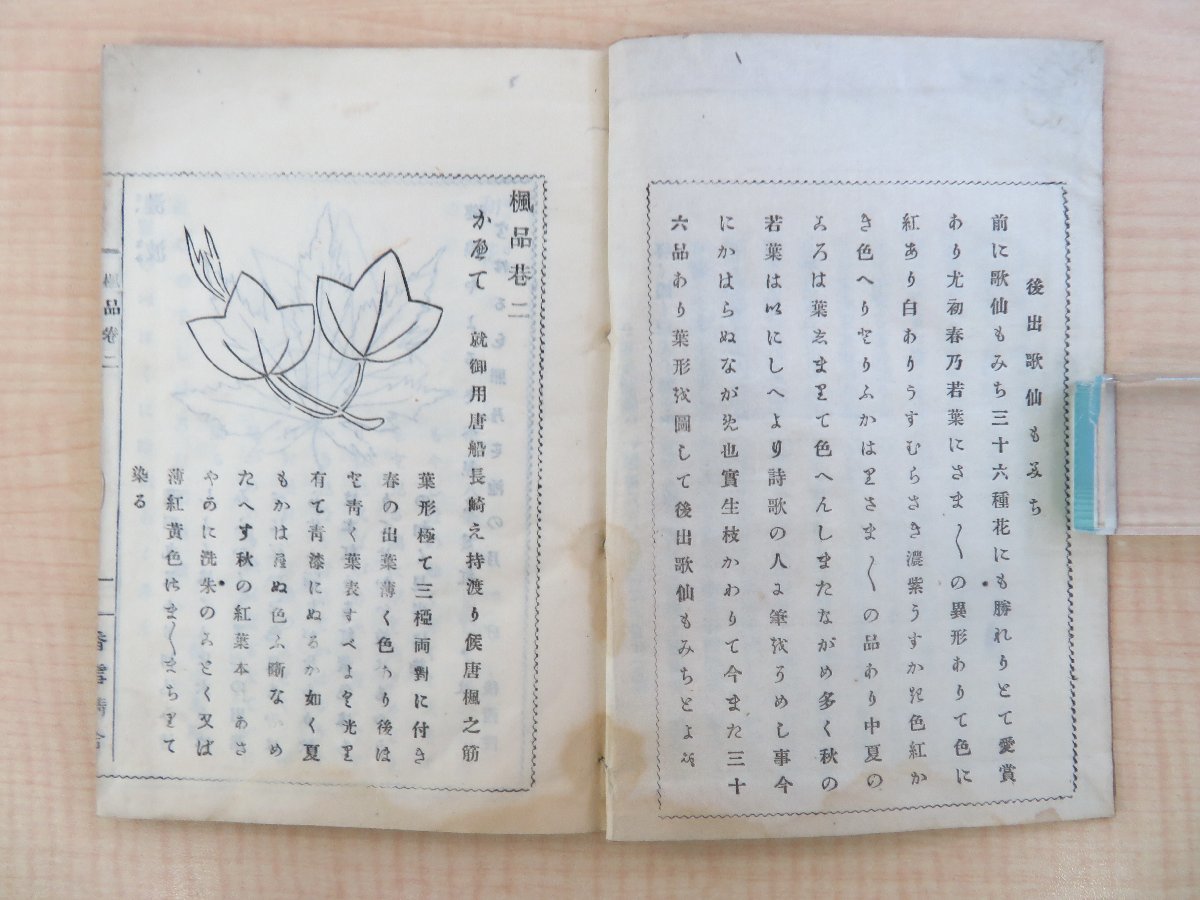 後出歌仙もみち
前に歌仙もみち三十六種花にも勝れりとて愛賞
あり尤初春乃若葉にさま〱の異形ありて色に
紅あり白ありうすむらさき濃紫うすか起色紅か
き色へりとりふかはりさま〱の品あり中夏の
ころは葉志まりて色へんしまたながめ多く秋の
若葉は以にしへより詩歌の人も筆越うめし事今
にかはらぬながめ也實生枝かわりて今また三十
六品あり葉形越圖して後出歌仙もみちとよふ
楓品巻二
かえて 就御用唐船長崎え持渡り候唐楓之筋
葉形極て三極両對に付き
春の出葉薄く色あり後は
を靑く葉表すべよを光り
有て靑漆にぬるか如く夏
もかはらぬ色ふ斷な め
たへす秋の紅葉本 あさ
やかに洗朱のことく又ば
薄紅黄色はま〱まちりて
染る
楓品巻二
香雲精舎